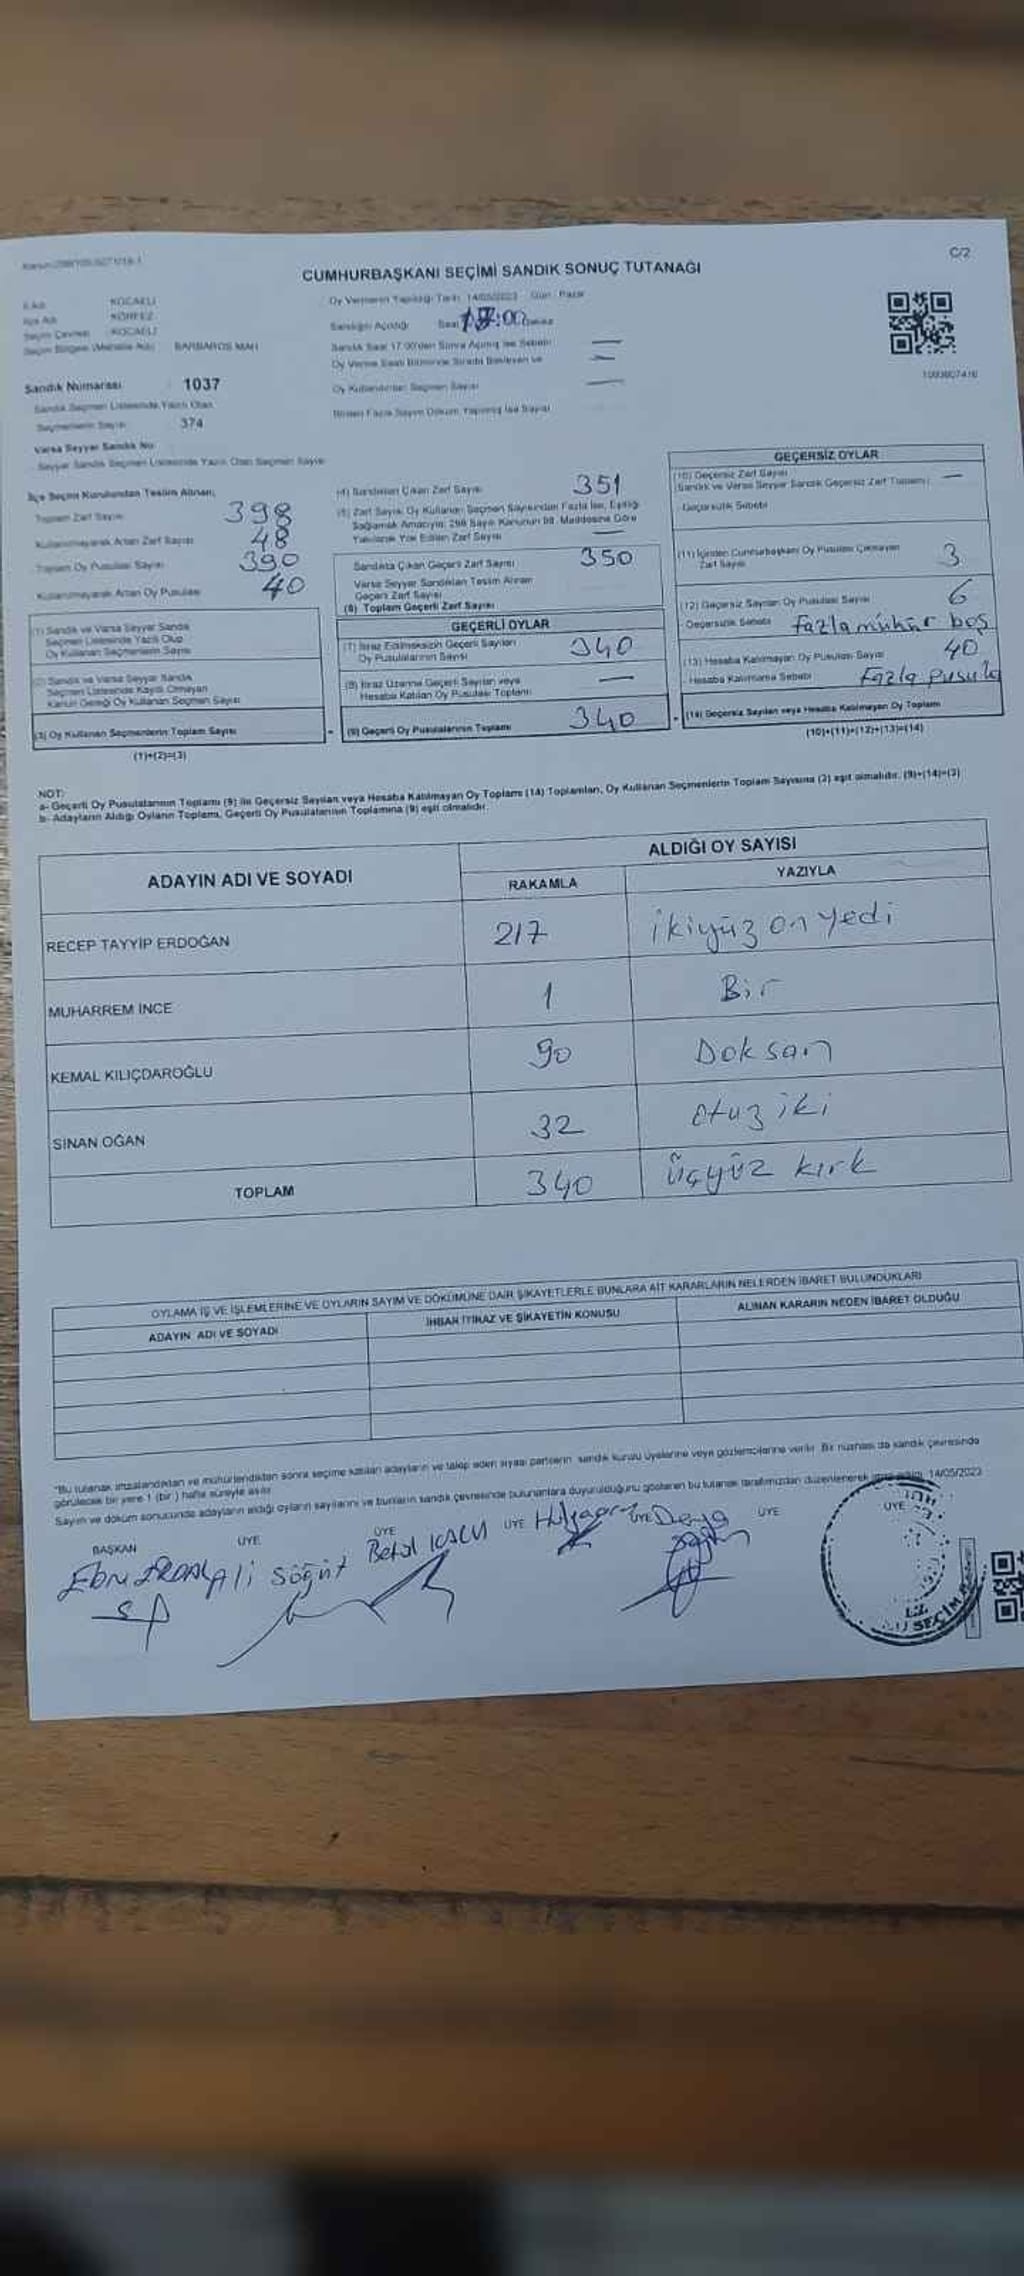 C/2
CUMHURBAŞKANI SEÇİMİ SANDIK SONUÇ TUTANAĞI
İl Adı KOCAELİ
İlçe Adı KÖRFEZ
Seçim Çevresi KOCAELİ
Seçim Bölgesi (Mahalle Adı) BARBAROS MAH
Sandık Numarası : 1037
Sandık Seçmen Listesinde Yazılı Olan
Seçmenlerin Sayısı : 374
Varsa Seyyar Sandık No:
Seyyar Sandık Seçmen Listesinde Yazılı Olan Seçmen Sayısı
Oy Vermenin Yapıldığı Tarih: 14/05/2023 Gün: Pazar
Sandığın Açıldığı Saat 17:00
Sandık Saat 17:00'den Sonra Açılmış İse Sebebi —
Oy Verme Saati Bitiminde Sırada Bekleyen ve —
Oy Kullandırılan Seçmen Sayısı —
Birden Fazla Sayım Döküm Yapılmış İse Sayısı
İlçe Seçim Kurulundan Teslim Alınan;
Toplam Zarf Sayısı 398
Kullanılmayarak Artan Zarf Sayısı 48
Toplam Oy Pusulası Sayısı 390
Kullanılmayarak Artan Oy Pusulası 40
(1) Sandık ve Varsa Seyyar Sandık
Seçmen Listesinde Yazılı Olup
Oy Kullanan Seçmenlerin Sayısı
(2) Sandık ve Varsa Seyyar Sandık
Seçmen Listesinde Kayıtlı Olmayan
Kanun Gereği Oy Kullanan Seçmen Sayısı
(3) Oy Kullanan Seçmenlerin Toplam Sayısı
(1)+(2)=(3)
(4) Sandıktan Çıkan Zarf Sayısı 351
(5) Zarf Sayısı, Oy Kullanan Seçmen Sayısından Fazla İse, Eşitliği
Sağlamak Amacıyla; 298 Sayılı Kanunun 98. Maddesine Göre
Yakılarak Yok Edilen Zarf Sayısı —
Sandıkta Çıkan Geçerli Zarf Sayısı 350
Varsa Seyyar Sandıktan Teslim Alınan
Geçerli Zarf Sayısı
(6) Toplam Geçerli Zarf Sayısı
GEÇERLİ OYLAR
(7) İtiraz Edilmeksizin Geçerli Sayılan
Oy Pusulalarının Sayısı 340
(8) İtiraz Üzerine Geçerli Sayılan veya
Hesaba Katılan Oy Pusulası Toplamı —
(9) Geçerli Oy Pusulalarının Toplamı 340
GEÇERSİZ OYLAR
(10) Geçersiz Zarf Sayısı
(Sandık ve Varsa Seyyar Sandık Geçersiz Zarf Toplamı) —
Geçersizlik Sebebi
(11) İçinden Cumhurbaşkanı Oy Pusulası Çıkmayan
Zarf Sayısı 3
(12) Geçersiz Sayılan Oy Pusulası Sayısı 6
Geçersizlik Sebebi Fazla mühür boş
(13) Hesaba Katılmayan Oy Pusulası Sayısı 40
Hesaba Katılmama Sebebi Fazla pusula
(14) Geçersiz Sayılan veya Hesaba Katılmayan Oy Toplamı
(10)+(11)+(12)+(13)=(14)
NOT:
a- Geçerli Oy Pusulalarının Toplamı (9) ile Geçersiz Sayılan veya Hesaba Katılmayan Oy Toplamı (14) Toplamları, Oy Kullanan Seçmenlerin Toplam Sayısına (3) eşit olmalıdır. (9)+(14)=(3)
b- Adayların Aldığı Oyların Toplamı, Geçerli Oy Pusulalarının Toplamına (9) eşit olmalıdır.
ADAYIN ADI VE SOYADI ALDIĞI OY SAYISI
RAKAMLA YAZIYLA
RECEP TAYYİP ERDOĞAN 217 ikiyüz on yedi
MUHARREM İNCE 1 Bir
KEMAL KILIÇDAROĞLU 90 Doksan
SİNAN OĞAN 32 otuz iki
TOPLAM 340 üçyüz kırk
OYLAMA İŞ VE İŞLEMLERİNE VE OYLARIN SAYIM VE DÖKÜMÜNE DAİR ŞİKAYETLERLE BUNLARA AİT KARARLARIN NELERDEN İBARET BULUNDUKLARI
ADAYIN ADI VE SOYADI İHBAR İTİRAZ VE ŞİKAYETİN KONUSU ALINAN KARARIN NEDEN İBARET OLDUĞU
"Bu tutanak imzalandıktan ve mühürlendikten sonra seçime katılan adayların ve talep eden siyasi partilerin sandık kurulu üyelerine veya gözlemcilerine verilir. Bir nüshası da sandık çevresinde
görülecek bir yere 1 (bir) hafta süreyle asılır.
Sayım ve döküm sonucunda adayların aldığı oyların sayılarını ve bunların sandık çevresinde bulunanlara duyurulduğunu gösteren bu tutanak tarafımızdan düzenlenerek 14/05/2023
BAŞKAN ÜYE ÜYE ÜYE ÜYE ÜYE ÜYE
Ali Söğüt
Derya
SEÇİM